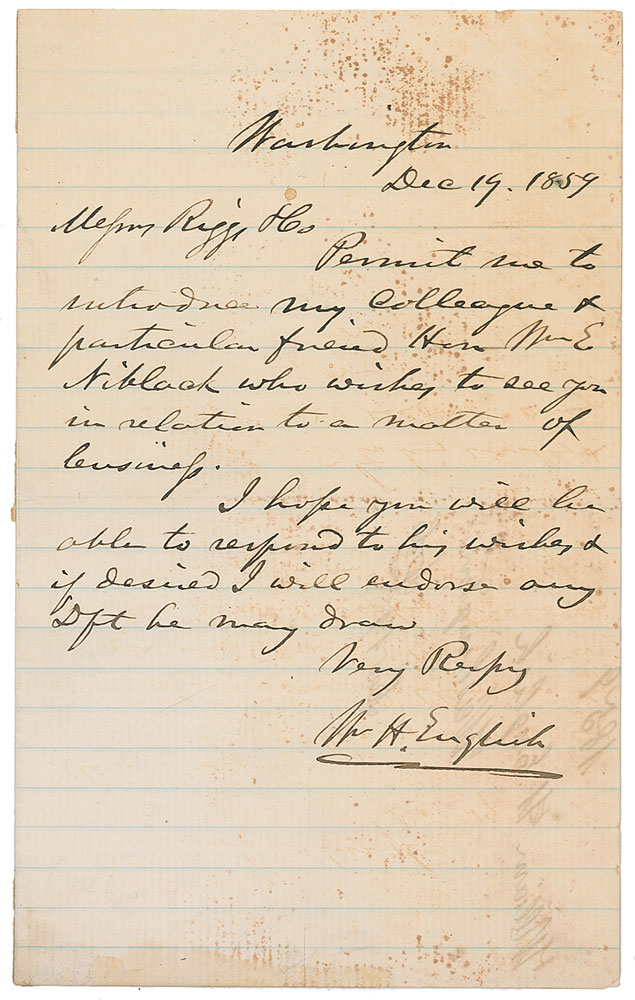 Washington
Dec 19. 1859
Messrs Riggs & Co
Permit me to
introduce my Colleague &
particular friend Hon Wm E
Niblack who wishes to see you
in relation to a matter of
business.
I hope you will be
able to respond to his wishes &
if desired I will endorse any
Dft he may draw
Very Respy
Wm H. English